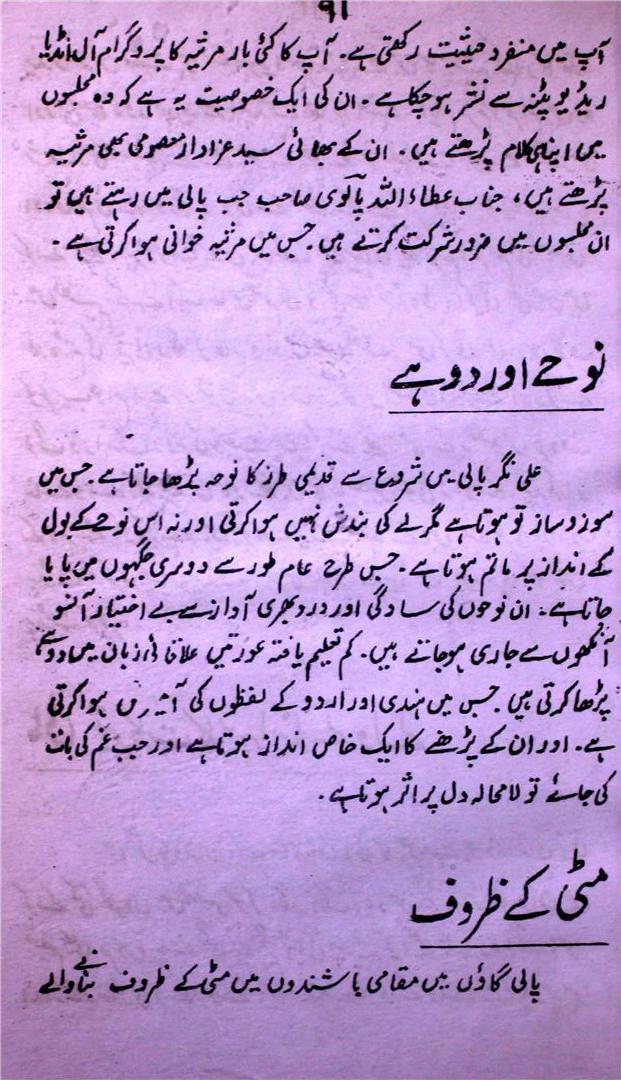 ۹۱
آپ میں منفرد حیثیت رکھتی ہے۔ آپ کا کئی بار مرثیہ کا پروگرام آل انڈیا
ریڈیو پٹنہ سے نشر ہو چکا ہے۔ ان کی ایک خصوصیت یہ ہے کہ وہ مجلسوں
میں اپنا ہی کلام پڑھتے ہیں۔ ان کے بھائی سید عزادار معصومی بھی مرثیہ
پڑھتے ہیں، جناب عطاء اللہ پالوی صاحب جب پالی میں رہتے ہیں تو
ان مجلسوں میں ضرور شرکت کرتے ہیں جس میں مرثیہ خوانی ہوا کرتی ہے۔
نوحے اور دوہے
علی نگر پالی میں شروع سے قدیمی طرز کا نوحہ پڑھا جاتا ہے۔ جس میں
سوز و ساز تو ہوتا ہے مگر لے کی بندش نہیں ہوا کرتی اور نہ اس نوحے کے بول
کے انداز پر ماتم ہوتا ہے۔ جس طرح عام طور سے دوسری جگہوں میں پایا
جاتا ہے۔ ان نوحوں کی سادگی اور درد بھری آواز سے بے اختیار آنسو
آنکھوں سے جاری ہو جاتے ہیں۔ کم تعلیم یافتہ عورتیں علاقائی زبان میں دوہے
پڑھا کرتی ہیں جس میں ہندی اور اردو کے لفظوں کی آمیزش ہوا کرتی
ہے۔ اور ان کے پڑھنے کا ایک خاص انداز ہوتا ہے اور جب غم کی بات
کی جائے تو لامحالہ دل پر اثر ہوتا ہے۔
مٹی کے ظروف
پالی گاؤں میں مقامی باشندوں میں مٹی کے ظروف بنانے والے